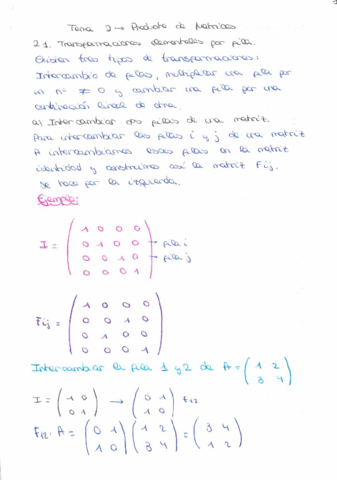 Tema 2 → Producto de Matrices
2.1. Transformaciones elementales por fila.
Existen tres tipos de transformaciones:
Intercambio de filas, multiplicar una fila por
un nº ≠ 0 y cambiar una fila por una
combinación lineal de otra.
a) Intercambiar dos filas de una matriz
Para intercambiar las filas i y j de una matriz
A intercambiamos esas filas en la matriz
identidad y construimos así la matriz Fij.
Se hace por la izquierda.
Ejemplo:
1 0 0 0
I = 0 1 0 0 → fila i
0 0 1 0 → fila j
0 0 0 1
1 0 0 0
Fij = 0 0 1 0
0 1 0 0
0 0 0 1
Intercambiar la fila 1 y 2 de A = (1 2
3 4)
I = (1 0 → (0 1 F12
0 1) 1 0)
F12 · A = (0 1 (1 2 = (3 4
1 0) 3 4) 1 2)